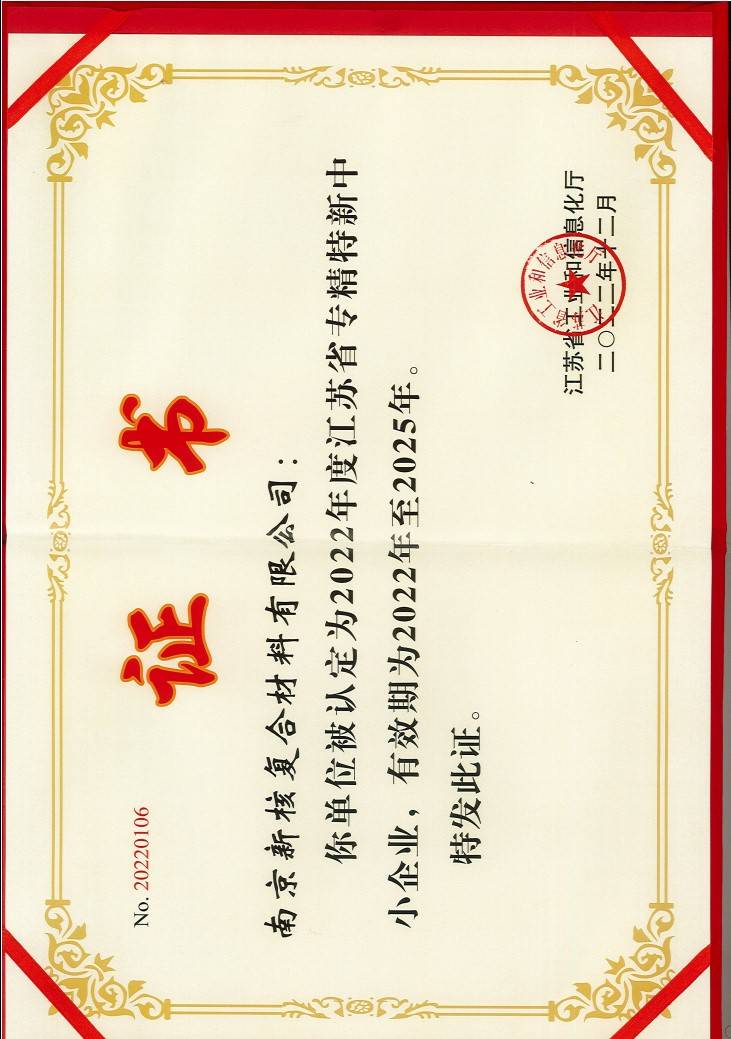 No. 20220106
证书
南京新核复合材料有限公司：
你单位被认定为2022年度江苏省专精特新中
小企业，有效期为2022年至2025年。
特发此证。
江苏省工业和信息化厅
二〇二二年十二月
江苏省工业和信息化厅